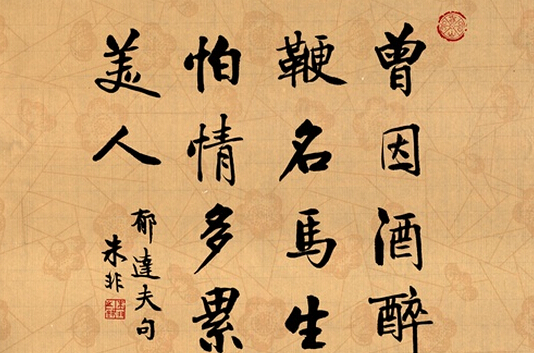 曾因酒醉
鞭名马生
怕情多累
美人
郁達夫句
朱非